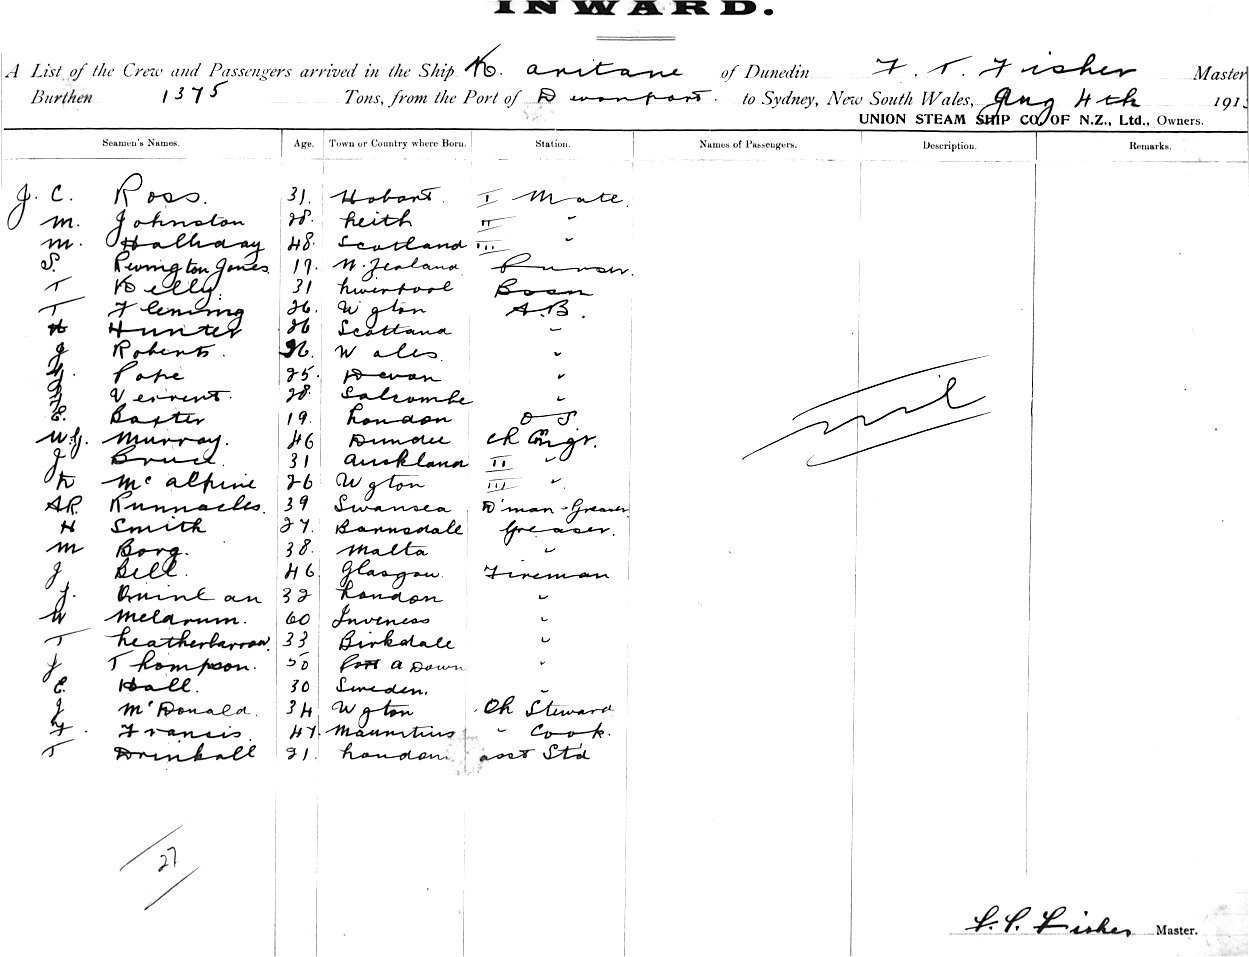 INWARD.
A List of the Crew and Passengers arrived in the Ship Karitane of Dunedin F. T. Fisher Master
Burthen 1375 Tons, from the Port of Devonport. to Sydney, New South Wales, Aug 4th 191
UNION STEAM SHIP CO. OF N.Z., Ltd., Owners.
Seamen's Names. Age. Town or Country where Born. Station. Names of Passengers. Description. Remarks.
J. C. Ross. 31. Hobart. I Mate.
M. Johnston 28. Leith II "
M. Halliday 48. Scotland III "
S. Rivington Jones 19. N. Zealand Purser.
T Kelly. 31 Liverpool Bosn
T Fleming 26. Wgton A.B.
H Hunter 26 Scotland "
J Roberts. 26. Wales. "
Pope 25. Devon "
Verrent. 28. Salcombe "
E. Baxter 19. London O S
W.J. Murray. 46 Dundee Ch Engr.
J Bruce. 31 Auckland II "
D McAlpine 26 Wgton III "
AR. Runnacles. 39 Swansea D'man - Greaser
H Smith 27. Barnsdale Greaser.
M Borg. 38. Malta "
J Bell. 46. Glasgow. Fireman
J. Quinlan 32 London "
W Meldrum. 60 Inveness "
T Leatherbarrow. 33 Birkdale "
J Thompson. 50 Port a Down "
C. Hall. 30 Sweden. "
J McDonald. 34 Wgton Ch Steward
F. Francis. 47. Mauritius " Cook.
T Drinkall 21. London. asst Std
nil
27
F. T. Fisher Master.